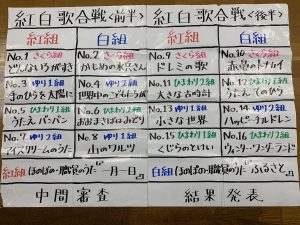 紅白歌合戦＜前半＞
紅組 白組
No.1 さくら組
どんないろがすき
No.2 さくら組
かもめの水兵さん
No.3 ゆり1組
手のひらを太陽に
No.4 ゆり2組
世界中のこどもたちが
No.5 ひまわり1組
うたえバンバン
No.6 ひまわり2組
おおきなは
No.7 ゆり2組
アイスクリームのうた
No.8 ゆり1組
山のワルツ
紅組 ほのぼの・職員のうた 一月一日
中間審査
紅白歌合戦＜後半＞
紅組 白組
No.9 さくら組
ドレミの歌
No.10 さくら組
赤鼻のトナカイ
No.11 ひまわり2組
大きな古時計
No.12 ひまわり1組
うたえてのひら
No.13 ゆり1組
小さな世界
No.14 ゆり2組
ハッピーチルドレン
No.15 ひまわり1組
くじらのとけい
No.16 ひまわり2組
ウィンター・ワンダーランド
白組 ほのぼの・職員のうた ふるさと
結果発表